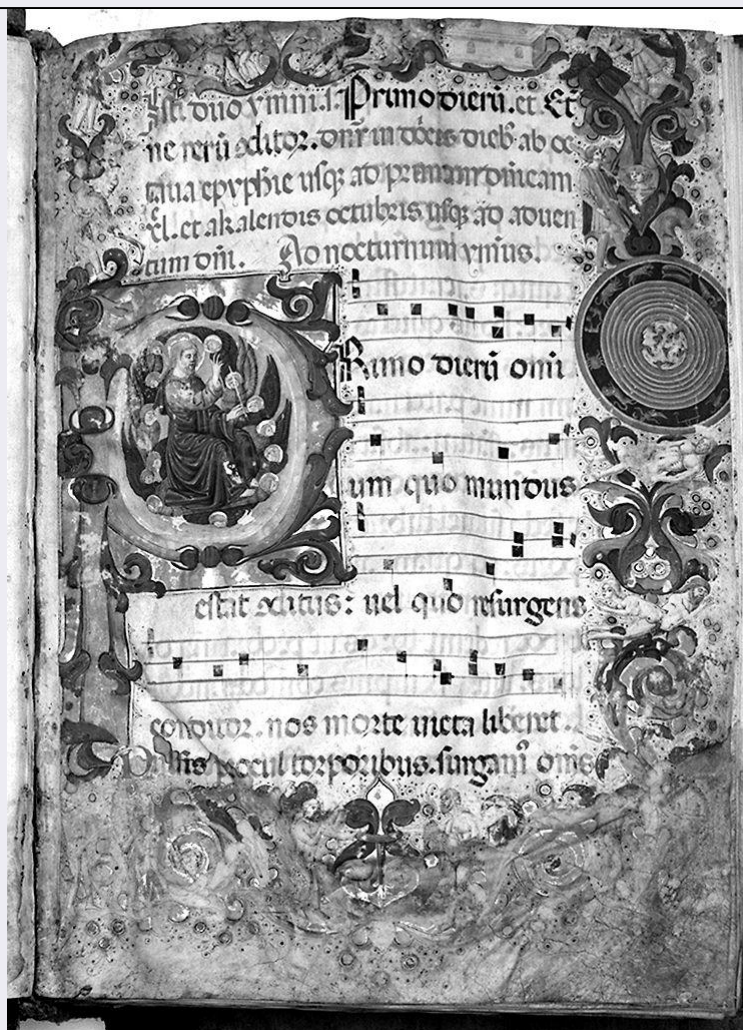 Isti duo ymni .s. Primo dierū. et Et
ne rerū ɔditor. dn̄r in dōcis dieb₉ ab oc
taua epyphīe usq₃ ad primam dn̄icam
xl. et a kalendis octubris usq₃ ad aduen
tum dn̄i. Ad nocturnum ymnus.
PRimo dierū oni
um quo mundus
estat ɔditus: uel quo resurgens
conditor. nos morte uicta liberet.
Pulsis procul torporibus. surgam₉ oms